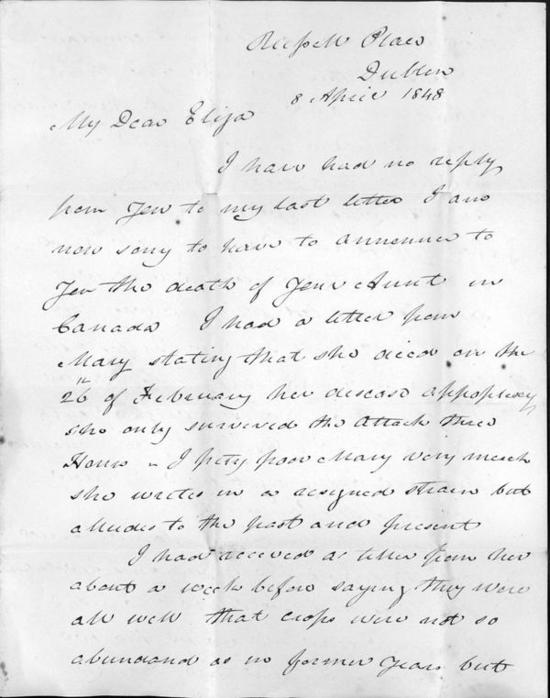 Russell Place
Dublin
8 April 1848
My Dear Eliza
I have had no reply
from you to my last letter I am
now sorry to have to announce to
you the death of your Aunt in
Canada I had a letter from
Mary stating that she died on the
26th of February her disease appoplexy
she only survived the attack three
Hours - I pity poor Mary very much
she writes in a resigned strain but
alludes to the past and present
I had received a letter from her
about a week before saying they were
all well that crops were not so
abundand as in former years but